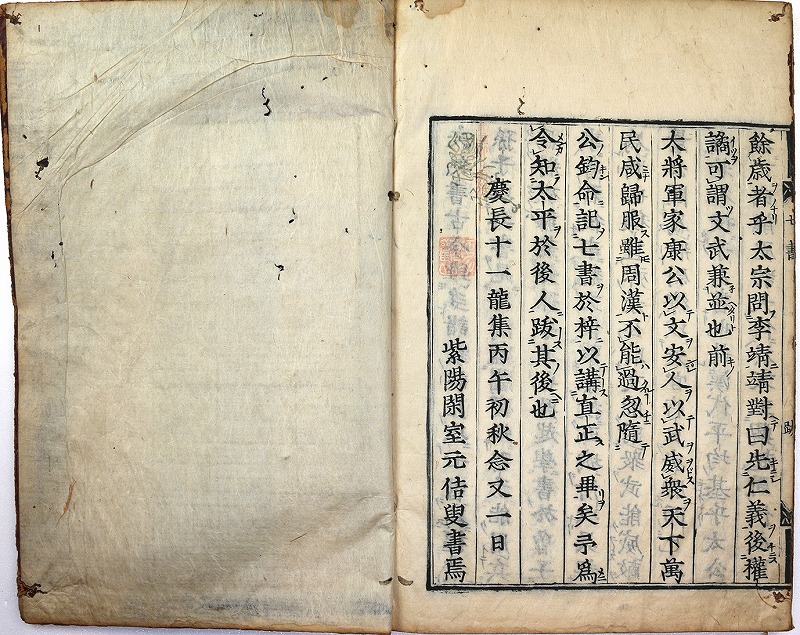 七書
跋
餘歳者乎太宗問李靖靖對曰先仁義後權
譎可謂文武兼並也前
大將軍家康公以文安人以武威衆天下萬
民咸歸服雖周漢不能過忽隨
公鈞命記七書於梓以講直正之畢矣予爲
令知太平於後人跋其後也
慶長十一龍集丙午初秋念又一日
紫陽閑室元佶叟書焉